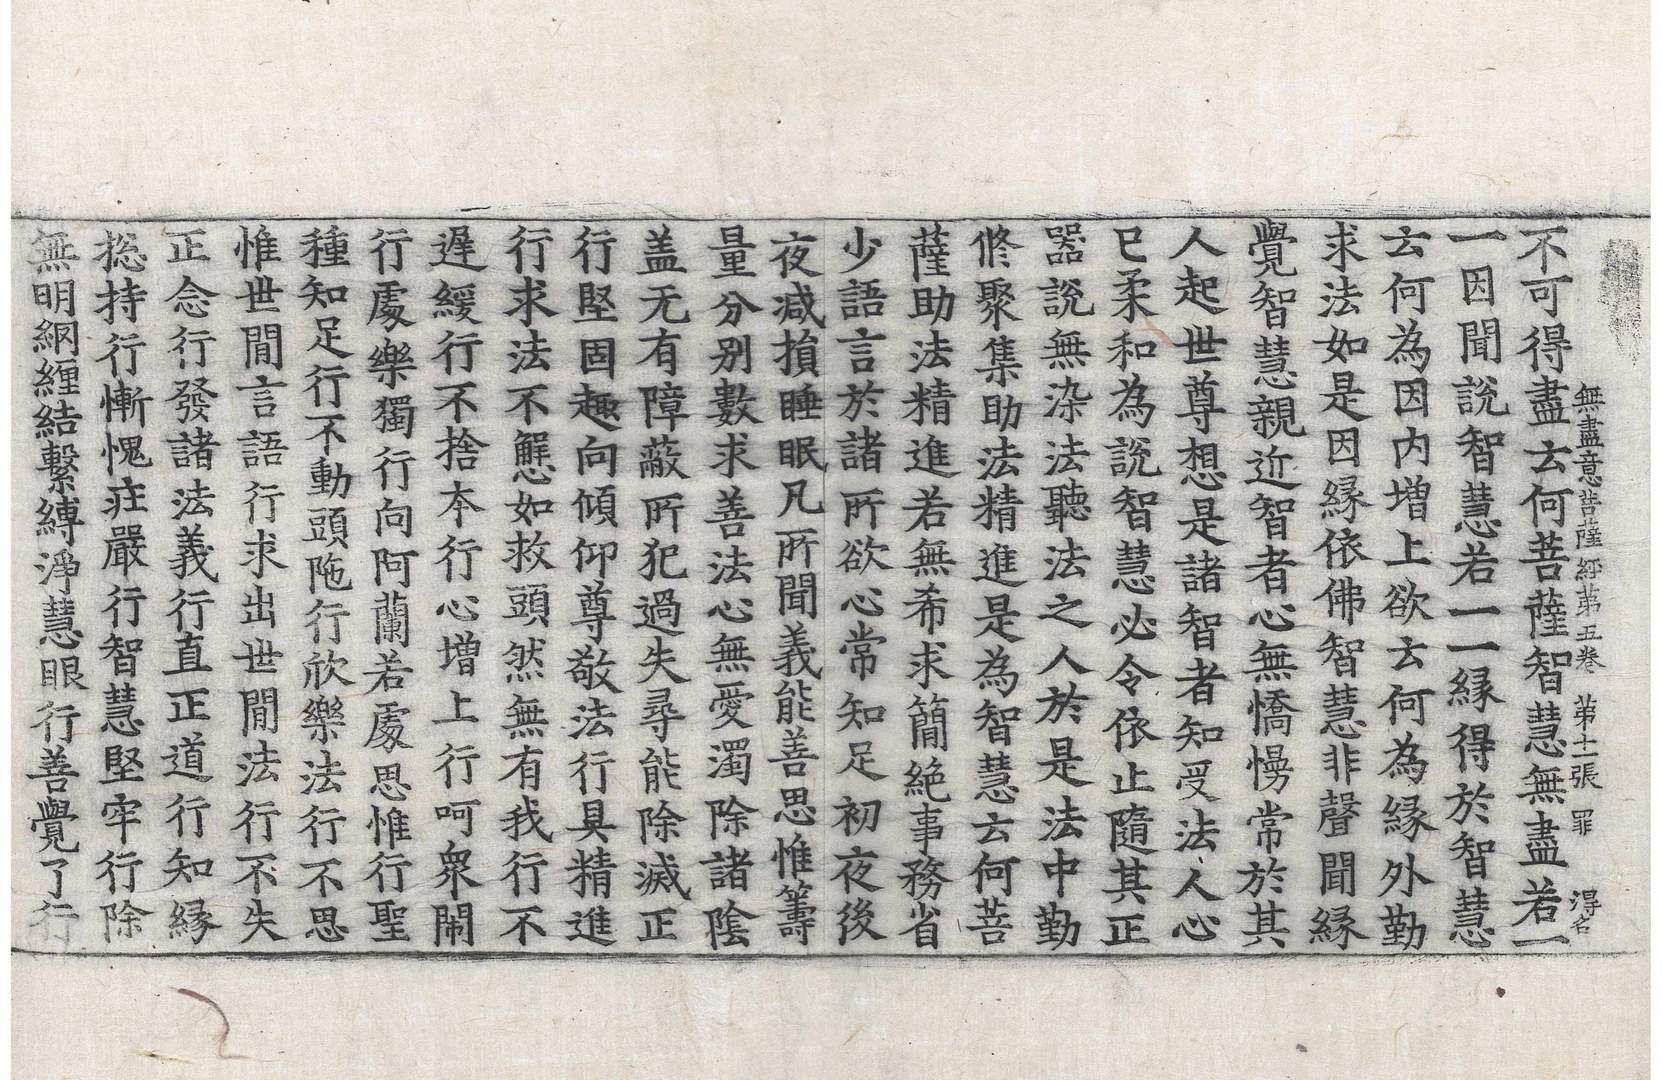 無盡意菩薩經第五卷　第十一張　罪　得名
不可得盡去何菩薩智慧無盡若一
一因聞說智慧若一一緣得於智慧
去何為因内增上欲去何為緣外勤
求法如是因緣依佛智慧非聲聞緣
覺智慧親近智者心無憍慢常於其
人起世尊想是諸智者知受法人心
已柔和為說智慧必令依止隨其正
器說無染法聽法之人於是法中勤
脩聚集助法精進是為智慧去何菩
薩助法精進若無希求簡絶事務省
少語言於諸所欲心常知足初夜後
夜減損睡眠凡所聞義能善思惟籌
量分別數求善法心無愛濁除諸陰
盖无有障蔽所犯過失尋能除滅正
行堅固趣向傾仰尊敬法行具精進
行求法不懈如救頭然無有我行不
遲緩行不捨本行心增上行呵衆鬧
行處樂獨行向阿蘭若處思惟行聖
種知足行不動頭陁行欣樂法行不思
惟世閒言語行求出世閒法行不失
正念行發諸法義行直正道行知緣
捴持行慚愧庄嚴行智慧堅牢行除
無明網纏結繫縛淨慧眼行善覺了行